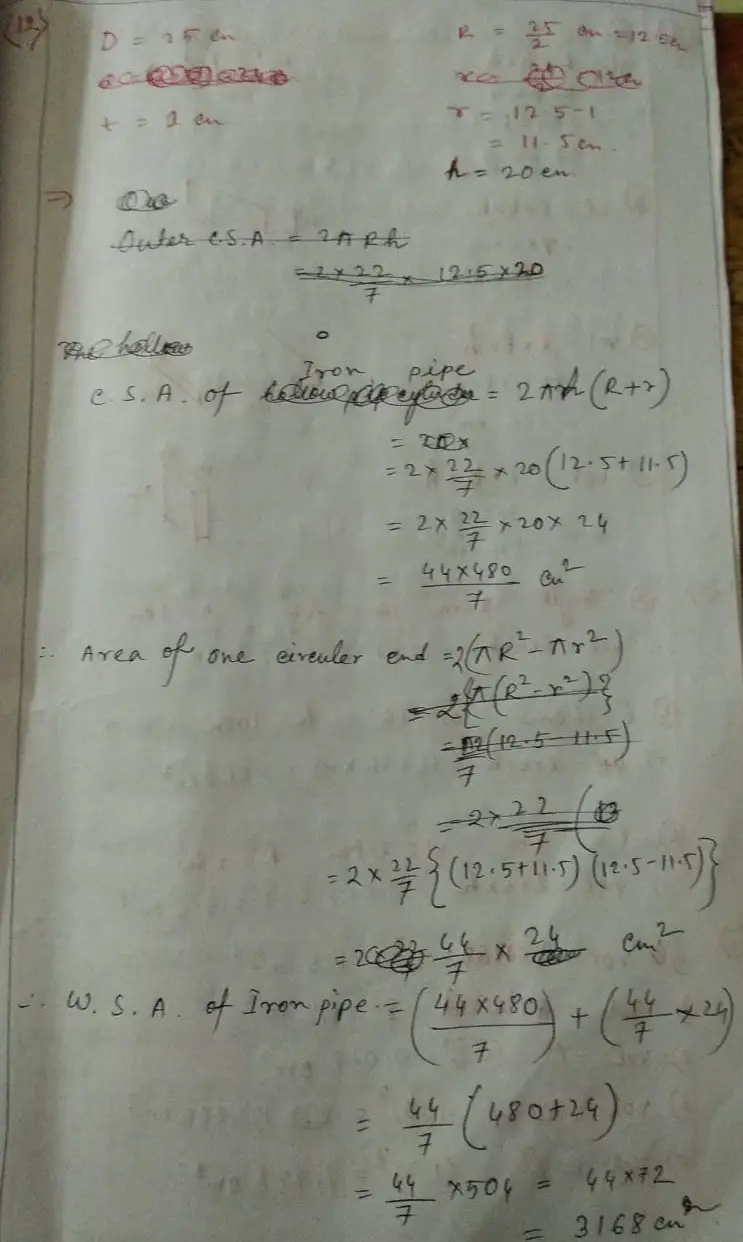 (12)
D = 25 cm R = 25/2 cm = 12.5cm
t = 1 cm r = 12.5-1
= 11.5cm.
h = 20cm.
⇒
Outer C.S.A = 2πRh
= 2×22/7 × 12.5×20
The hollow
Iron pipe
C.S.A. of = 2πh(R+r)
= 2×22/7×20(12.5+11.5)
= 2×22/7×20×24
= 44×480/7 cm²
∴ Area of one circuler end = 2(πR²-πr²)
= 2{π(R²-r²)}
= 22/7(12.5-11.5)
= 2×22/7(
= 2×22/7{(12.5+11.5)(12.5-11.5)}
= 44/7 × 24 cm²
∴ W.S.A. of Iron pipe = (44×480/7) + (44/7×24)
= 44/7(480+24)
= 44/7×504 = 44×72
= 3168 cm²